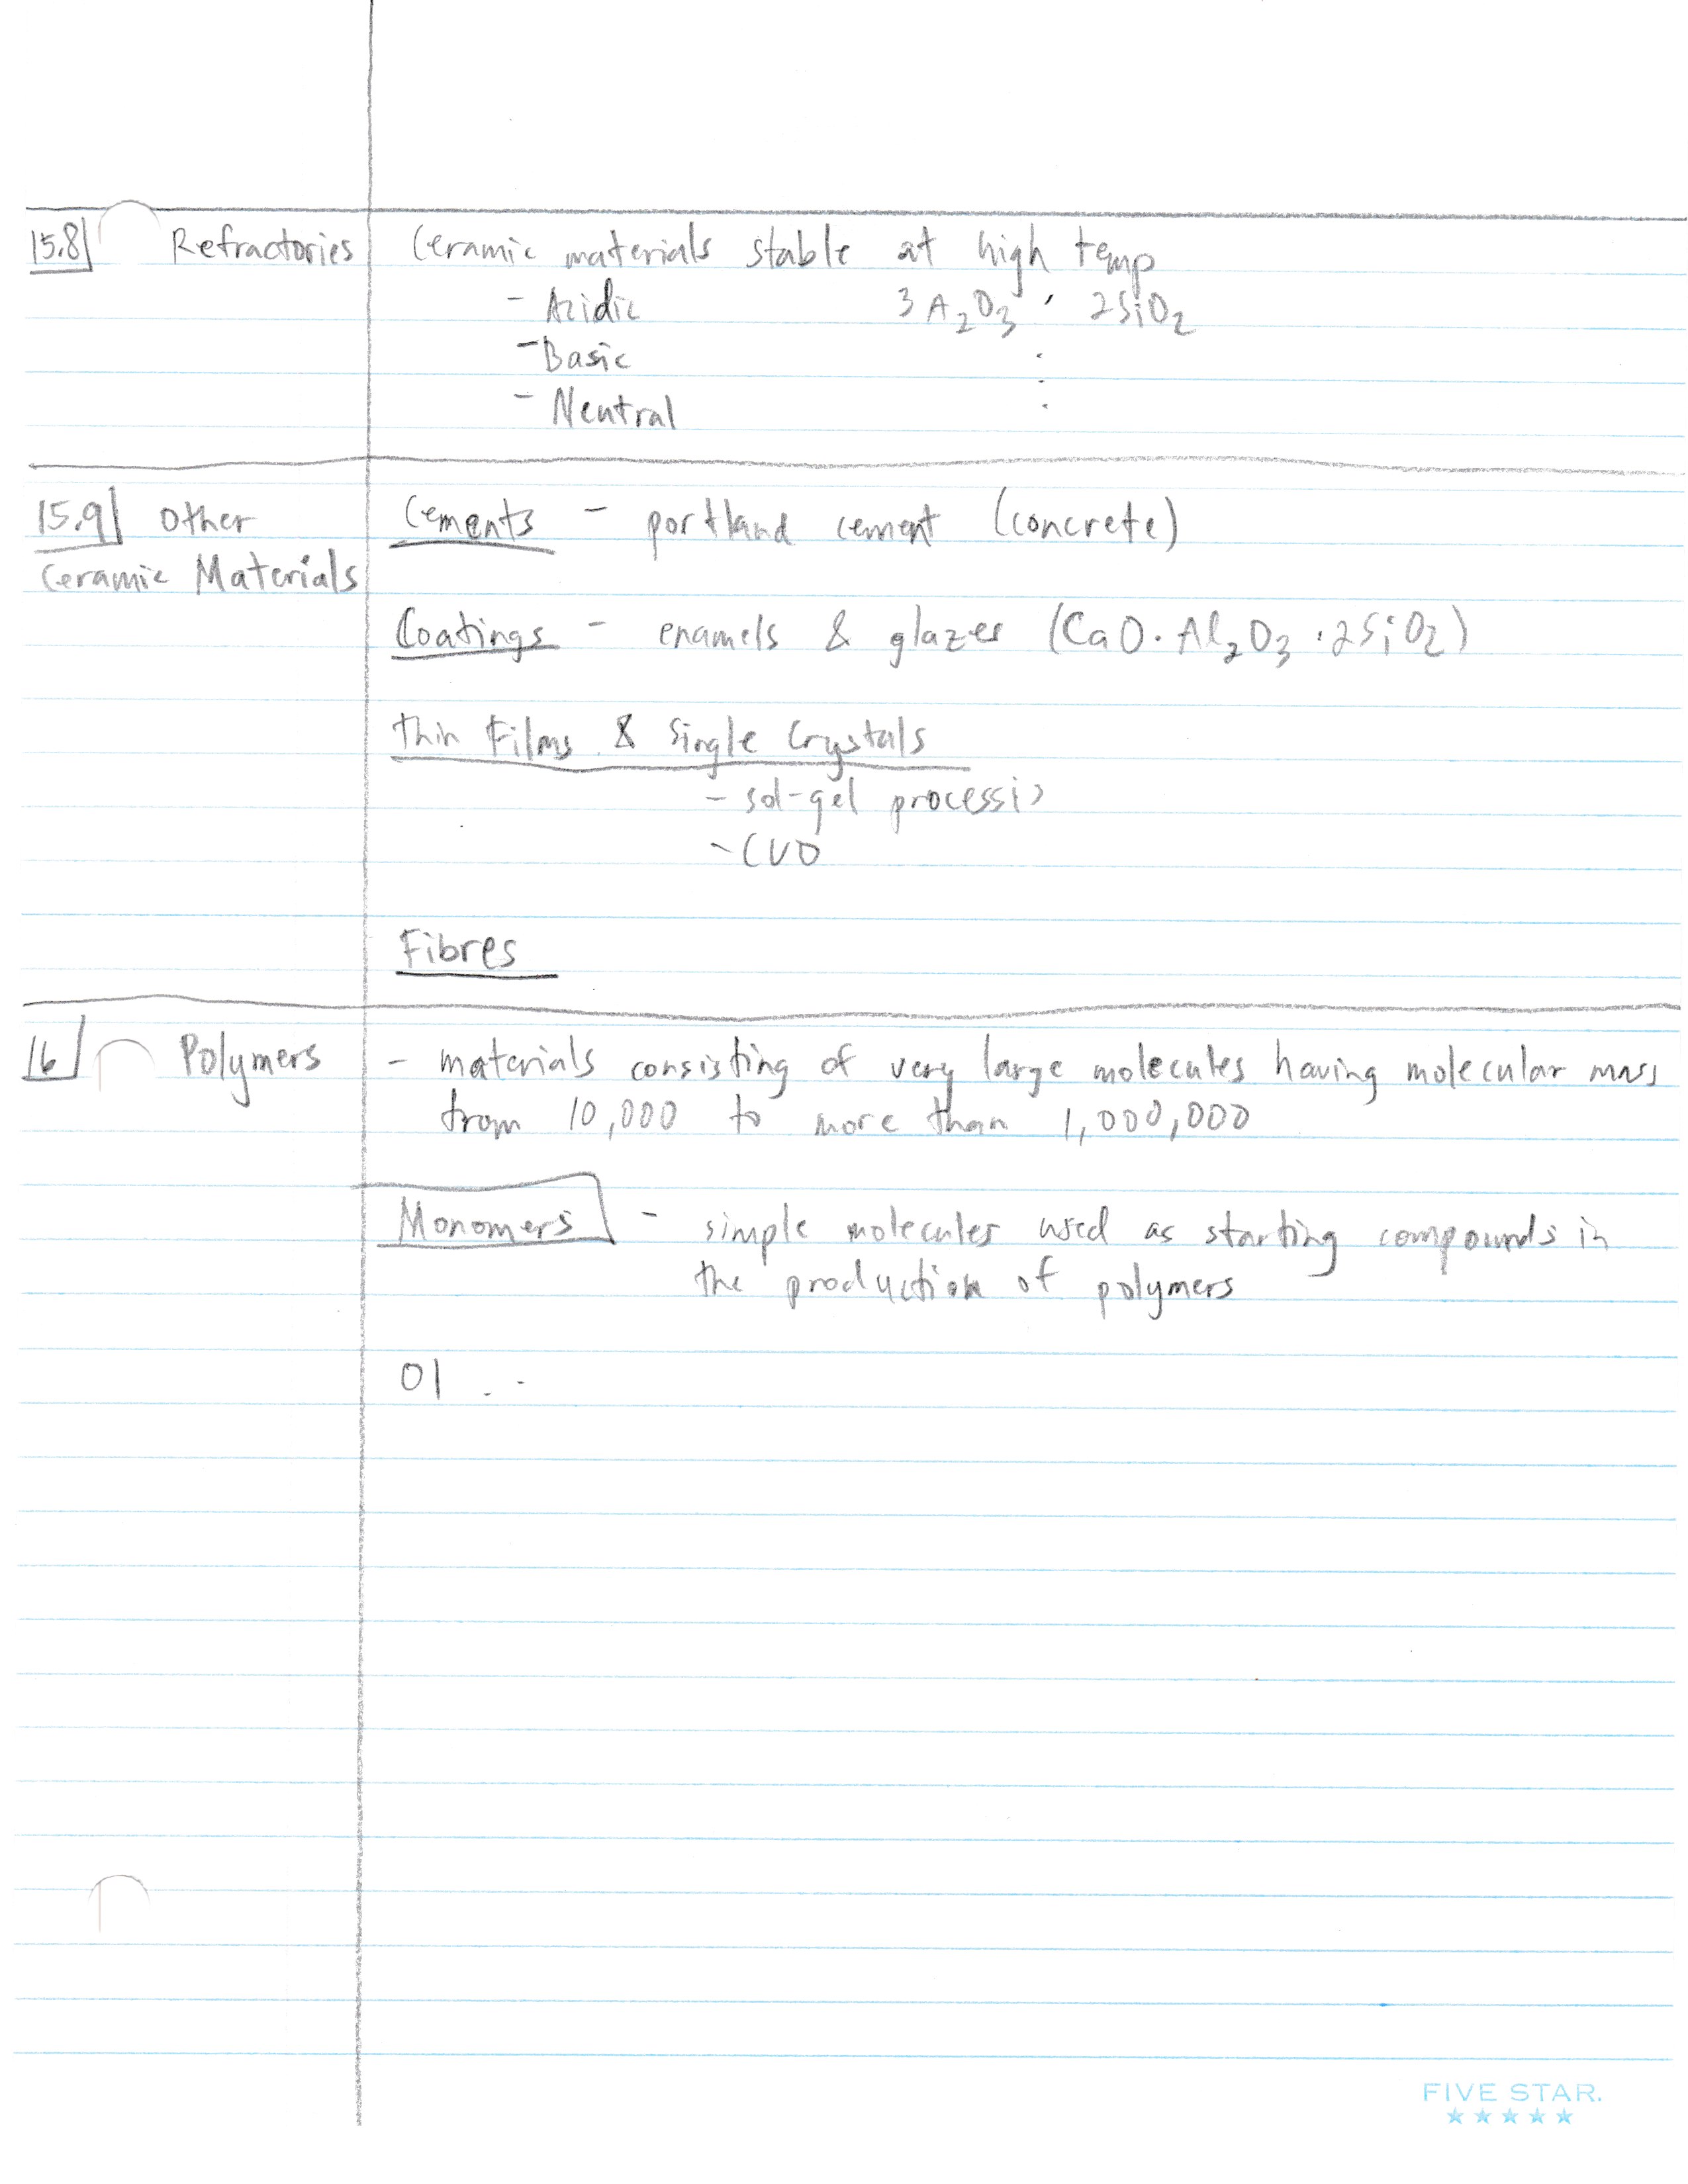 15.8 Refractories Ceramic materials stable at high temp
- Acidic 3A₂O₃ · 2SiO₂
- Basic
- Neutral
15.9 Other Cements - portland cement (concrete)
Ceramic Materials
Coatings - enamels & glazes (CaO·Al₂O₃·2SiO₂)
Thin Films & Single Crystals
- sol-gel
- CVD
Fibres
16 Polymers - materials consisting of very large molecules having molecular mass
from 10,000 to more than 1,000,000
Monomers - simple molecules used as starting compounds in
the production of polymers
FIVE STAR.